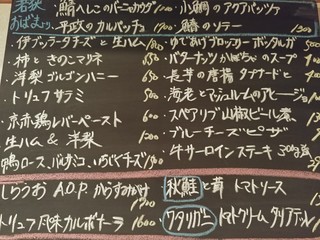 若狭
おばまより、
・鯖へしこのバーニャカウダ 1000
・小鯛のアクアパッツァ
・平政のカルパッチョ 1700
・鱸のソテー 1500
・ブッラータチーズと生ハム 1800
・柿ときのこマリネ 650
・洋梨ゴルゴンハニー 650
・トリュフサラミ 500
・京赤鶏レバーペースト 600
・生ハム&洋梨 1200
・鴨ロース、バルサミコ、いちぢくチーズ 1900
・ゆであげブロッコリー ボッタルガ 500
・バターナッツかぼちゃのスープ 400
・長芋の唐揚 タプナードと
・海老とマッシュルムのアヒージョ
・スペアリブ山椒ビール煮
・ブルーチーズピザ
・牛サーロインステーキ 300g
しらうお A.O.P. からすみがけ
トリュフ風味カルボナーラ 1600
秋鮭と茸 トマトソース
ワタリガニ トマトクリーム タリアテッレ